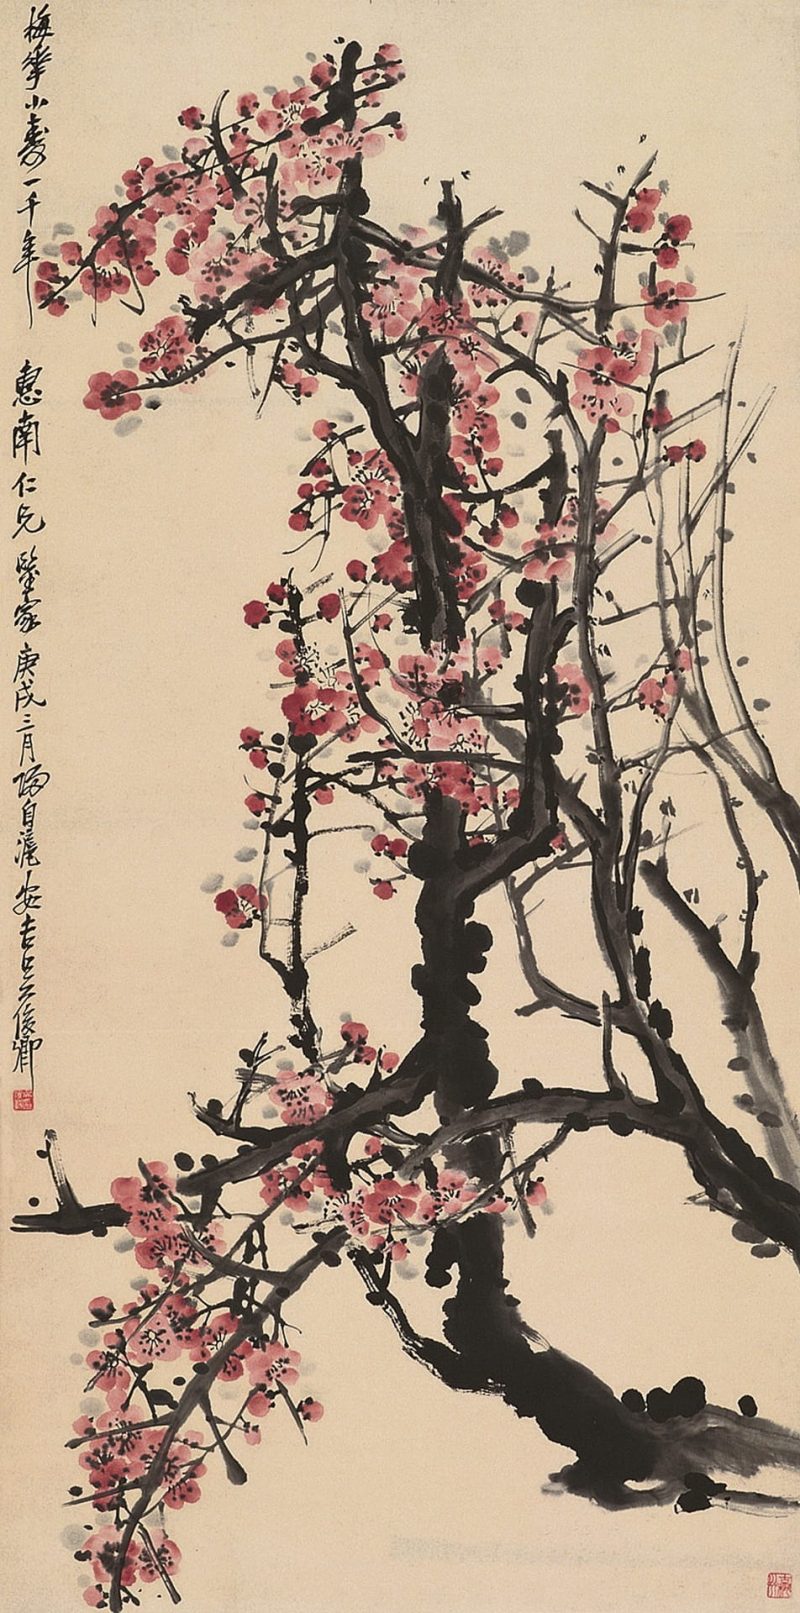 梅華小壽一千年
惠南仁兄鑒家庚戌三月歸自滬安吉吳俊卿